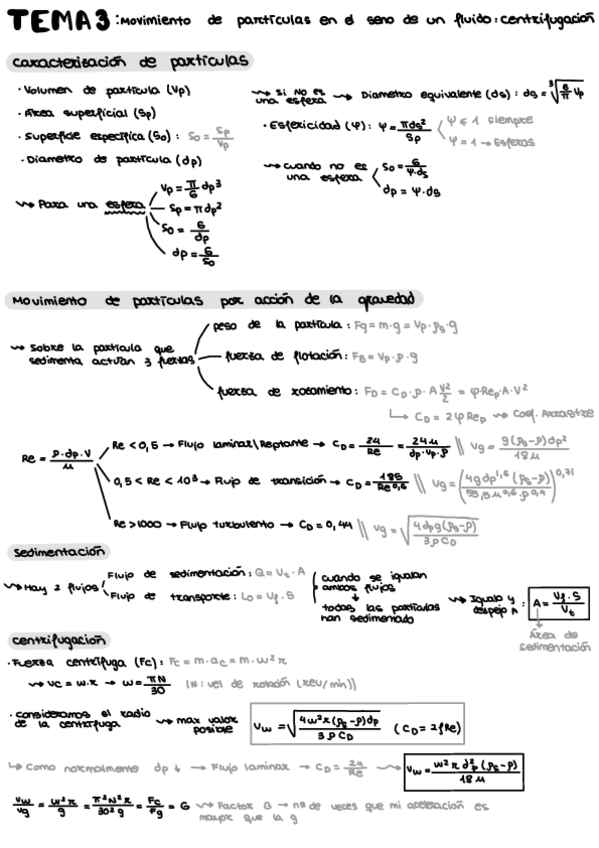 TEMA 3: Movimiento de partículas en el seno de un fluido: centrifugación
caracterización de partículas
· Volumen de partícula (Vp)
· Área superficial (Sp)
· Superficie específica (So): So = Sp/Vp
· Diametro de partícula (dp)
↝ Para una esfera
Vp = π/6 dp³
Sp = π dp²
So = 6/dp
dp = 6/So
↝ Si NO es una esfera ↝ Diametro equivalente (ds): ds = ∛(6/π Vp)
· Esfericidad (Ψ): Ψ = πds²/Sp
Ψ ≤ 1 siempre
Ψ = 1 → Esferas
↝ cuando no es una esfera
So = 6/(Ψ·ds)
dp = Ψ·ds
Movimiento de partículas por acción de la gravedad
↝ Sobre la partícula que sedimenta actúan 3 fuerzas
peso de la partícula: Fg = m·g = Vp·ρs·g
fuerza de flotación: FB = Vp·ρ·g
fuerza de rozamiento: FD = CD·ρ·A V²/2 = φ·Rep·A·V²
↳ CD = 2φRep ↝ Coef. Arrastre
Re = ρ·dp·V/μ
Re < 0,5 → Flujo laminar\Reptante → CD = 24/Re = 24μ/(dp·Vp·ρ) // Vg = g(ρs-ρ)dp²/18μ
0,5 < Re < 10³ → Flujo de transición → CD = 18,5/Re^0,6 // Vg = (4g dp^1,6 (ρs-ρ)/ μ^0,6·ρ^0,4)^0,71
Re > 1000 → Flujo turbulento → CD = 0,44 // Vg = √(4dpg(ρs-ρ)/3ρCD)
Sedimentación
↝ Hay 2 flujos
Flujo de sedimentación: Q = Vt·A
Flujo de transporte: Lo = Vf·S
cuando se igualan ambos flujos
↓
todas las partículas han sedimentado
↝ Igualo y despejo A: A = Vf·S/Vt
Área de sedimentación
centrifugacion
· Fuerza centrífuga (Fc): Fc = m·ac = m·w²r
↝ vc = w·r → w = πN/30 (N: vel de rotación (rev/min))
· consideramos el radio de la centrífuga ↝ max valor posible
Vw = √(4w²r(ρs-ρ)dp/3ρCD) (CD = 2fRe)
↳ Como normalmente dp ↓ → Flujo laminar → CD = 24/Re ↝ Vw = w²r d²p(ρs-ρ)/18μ
Vw/Vg = w²r/g = π²N²r/30²g = Fc/Fg = G ↝ Factor G → nº de veces que mi aceleración es
mayor que la g